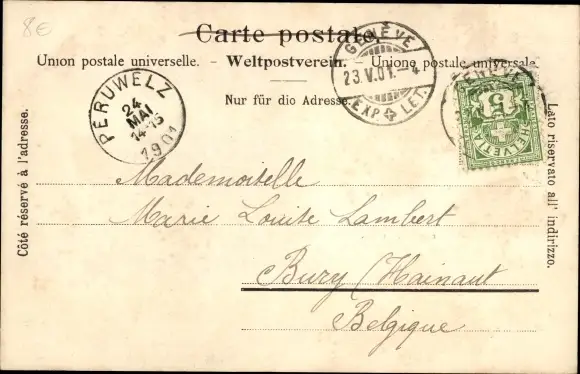 8€
Carte postale.
Union postale universelle. - Weltpostverein. - Unione postale universale.
Nur für die Adresse.
PÉRUWELZ
24
MAI
14-15
1901
GENÈVE
23.V.01.-4
EXP LET.
GENÈVE
5
HELVETIA
Côté réservé à l'adresse.
Lato riservato all' indirizzo.
Mademoiselle
Marie Louise Lambert
Bury (Hainaut
Belgique